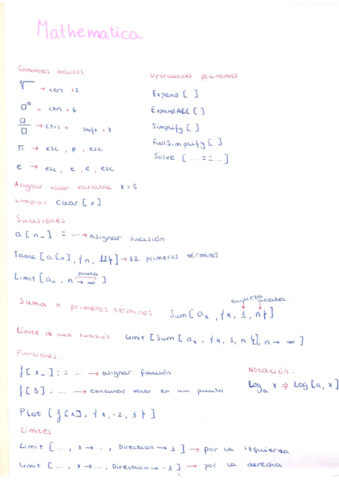 Mathematica
Comandos básicos
√ → ctrl + 2
□^□ → ctrl + 6
□/□ → ctrl + shift + 7
π → esc, p, esc
e → esc, e, e, esc
Operaciones polinomios:
Expand [ ]
ExpandAll [ ]
Simplify [ ]
FullSimplify [ ]
Solve [ ... == ... ]
Asignar valor variable x = 5
Limpiar Clear [x]
Sucesiones
a [n_] := ... → asignar sucesión
Table [a[n], {n, 12}] → 12 primeros términos
Limit [aₙ, n → ∞]
Suma n primeros términos Sum [aₖ, {k, 1, n}]
empieza acaba
Límite de una sucesión Limit [Sum [aₖ, {k, 1, n}], n → ∞]
Funciones:
f[x_] := ... → asignar función
f[3] := ... → calcular valor en un punto
Plot [f[x], {x, -2, 3}]
Notación:
Logₐ x ⇒ Log [a, x]
Límites
Limit [..., x → ..., Direction → 1] → por la izquierda
Limit [..., x → ..., Direction → -1] → por la derecha